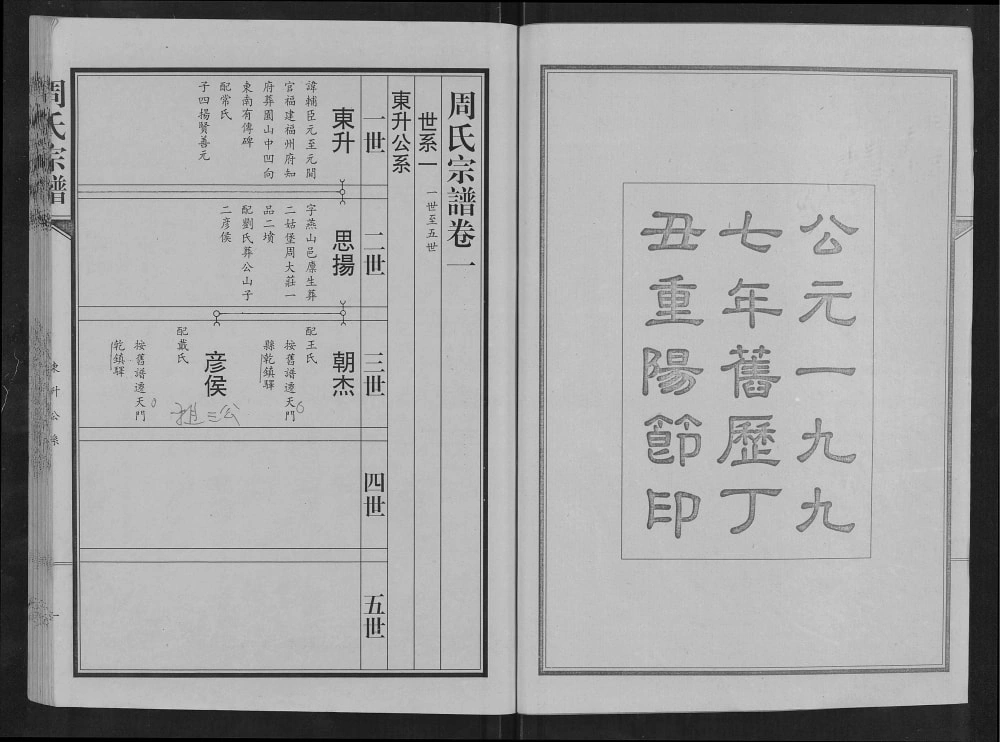 公元一九九
七年舊歷丁
丑重陽節印
周氏宗譜卷一
世系一
一世至五世
東升公系
一世
二世
三世
四世
五世
東升
諱輔臣元至元間
官福建福州府知
府葬圍山中凹向
東南有傳碑
配常氏
子四揚賢善元
思揚
字燕山邑廩生葬
二姑堡周大莊一
品二墳
配劉氏葬公山子
二彦侯
朝杰
配王氏
按舊譜遷天門
縣乾鎮驛
彦侯
配戴氏
按舊譜遷天門
乾鎮驛
三公
周氏宗譜
東升公系
一